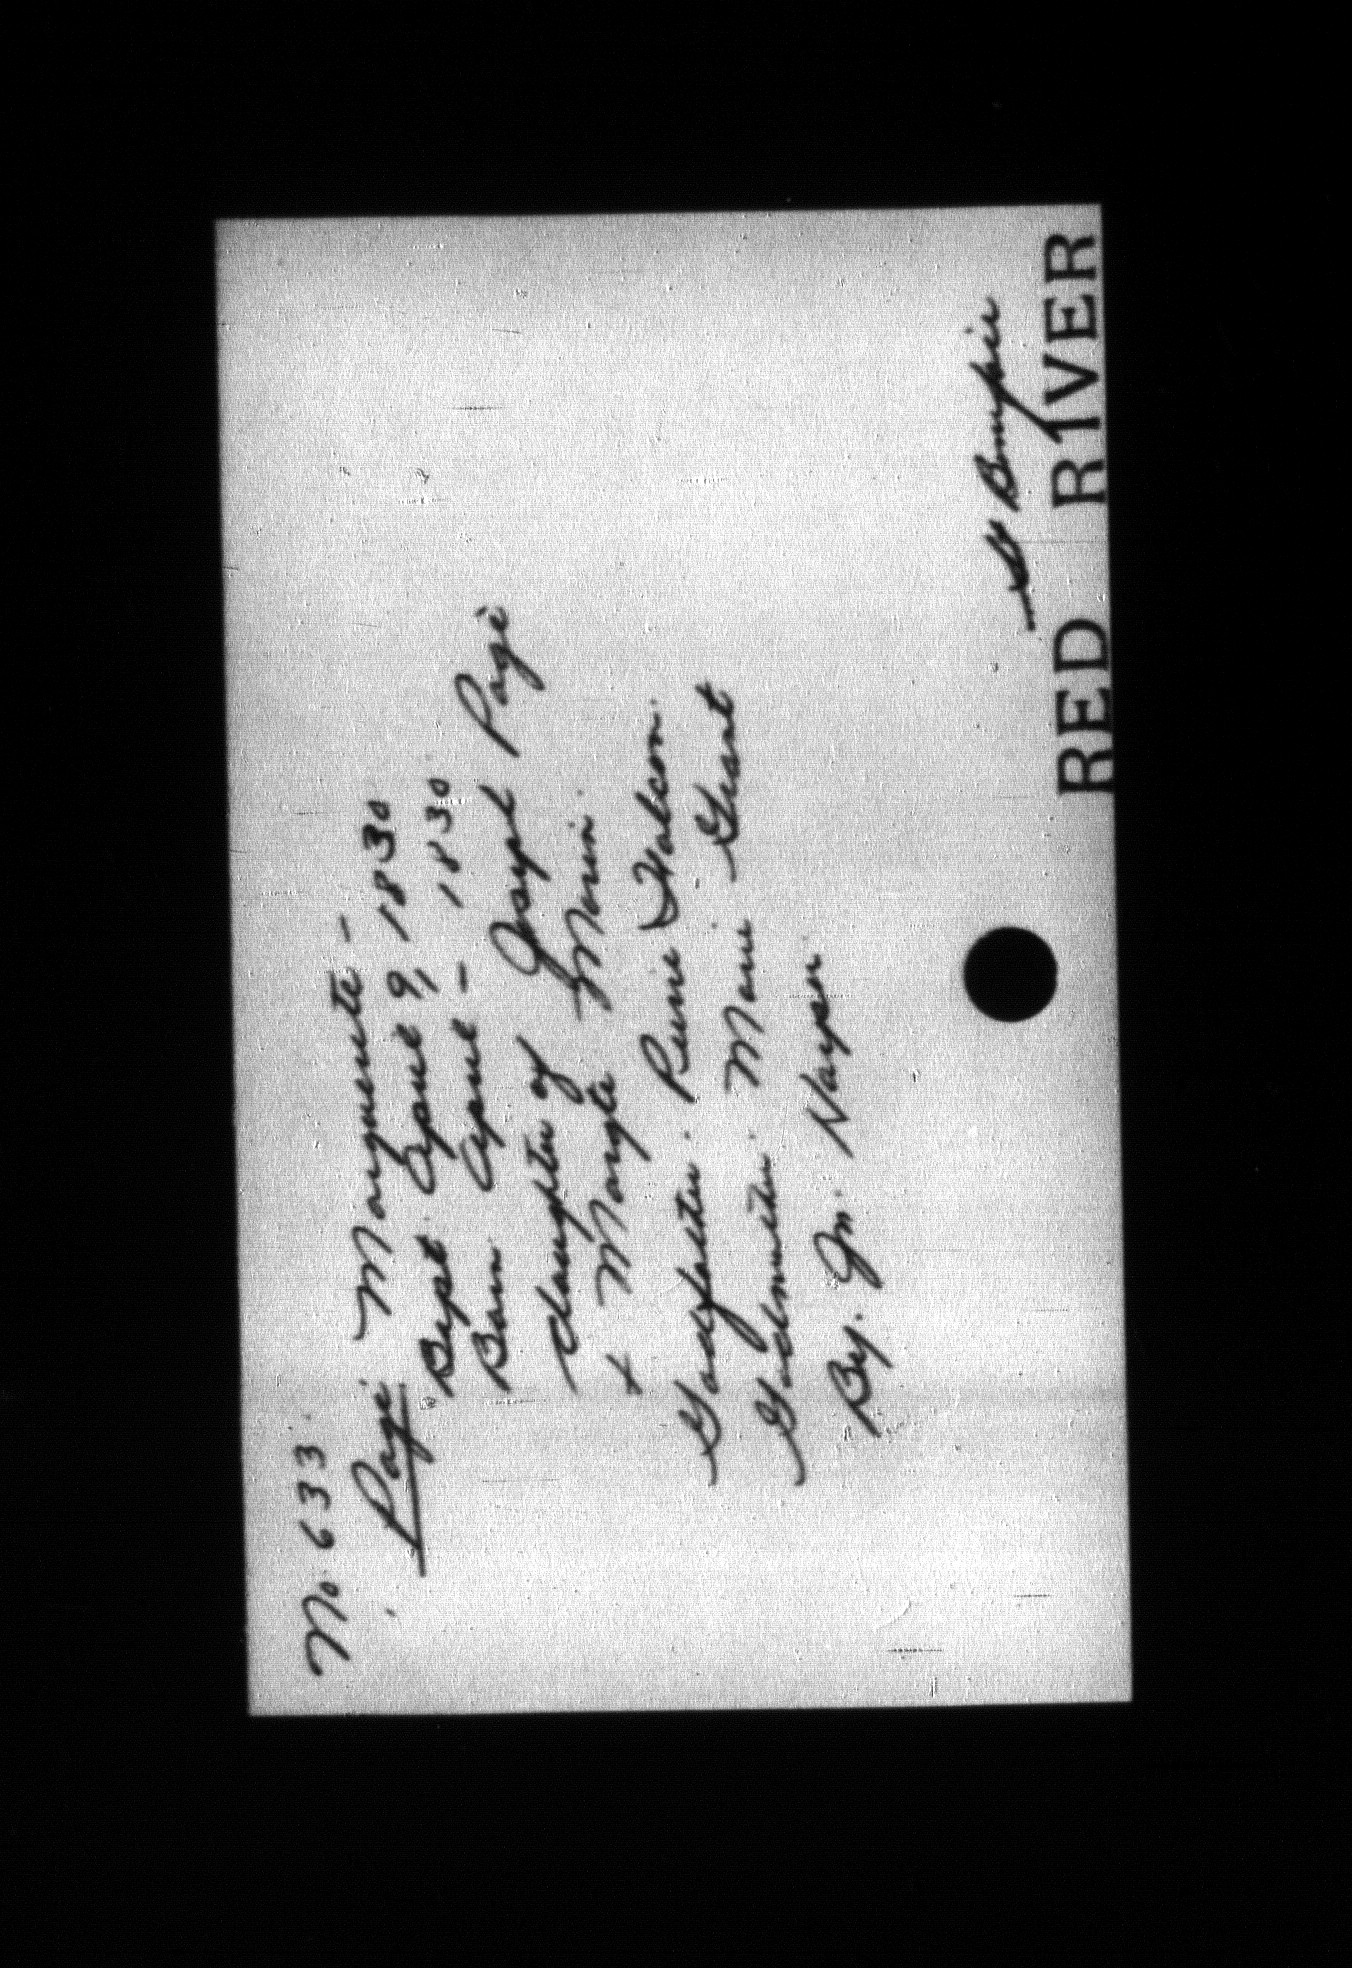 No 633.
Pagé Marguerite -
Bapt. April 9, 1830
Born April - 1830
daughter of Joseph Pagé
+ Margte Morin.
Godfather. Pierre Falcon.
Godmother. Marie Grant
By. Gm. Harper.
St Boniface
RED RIVER